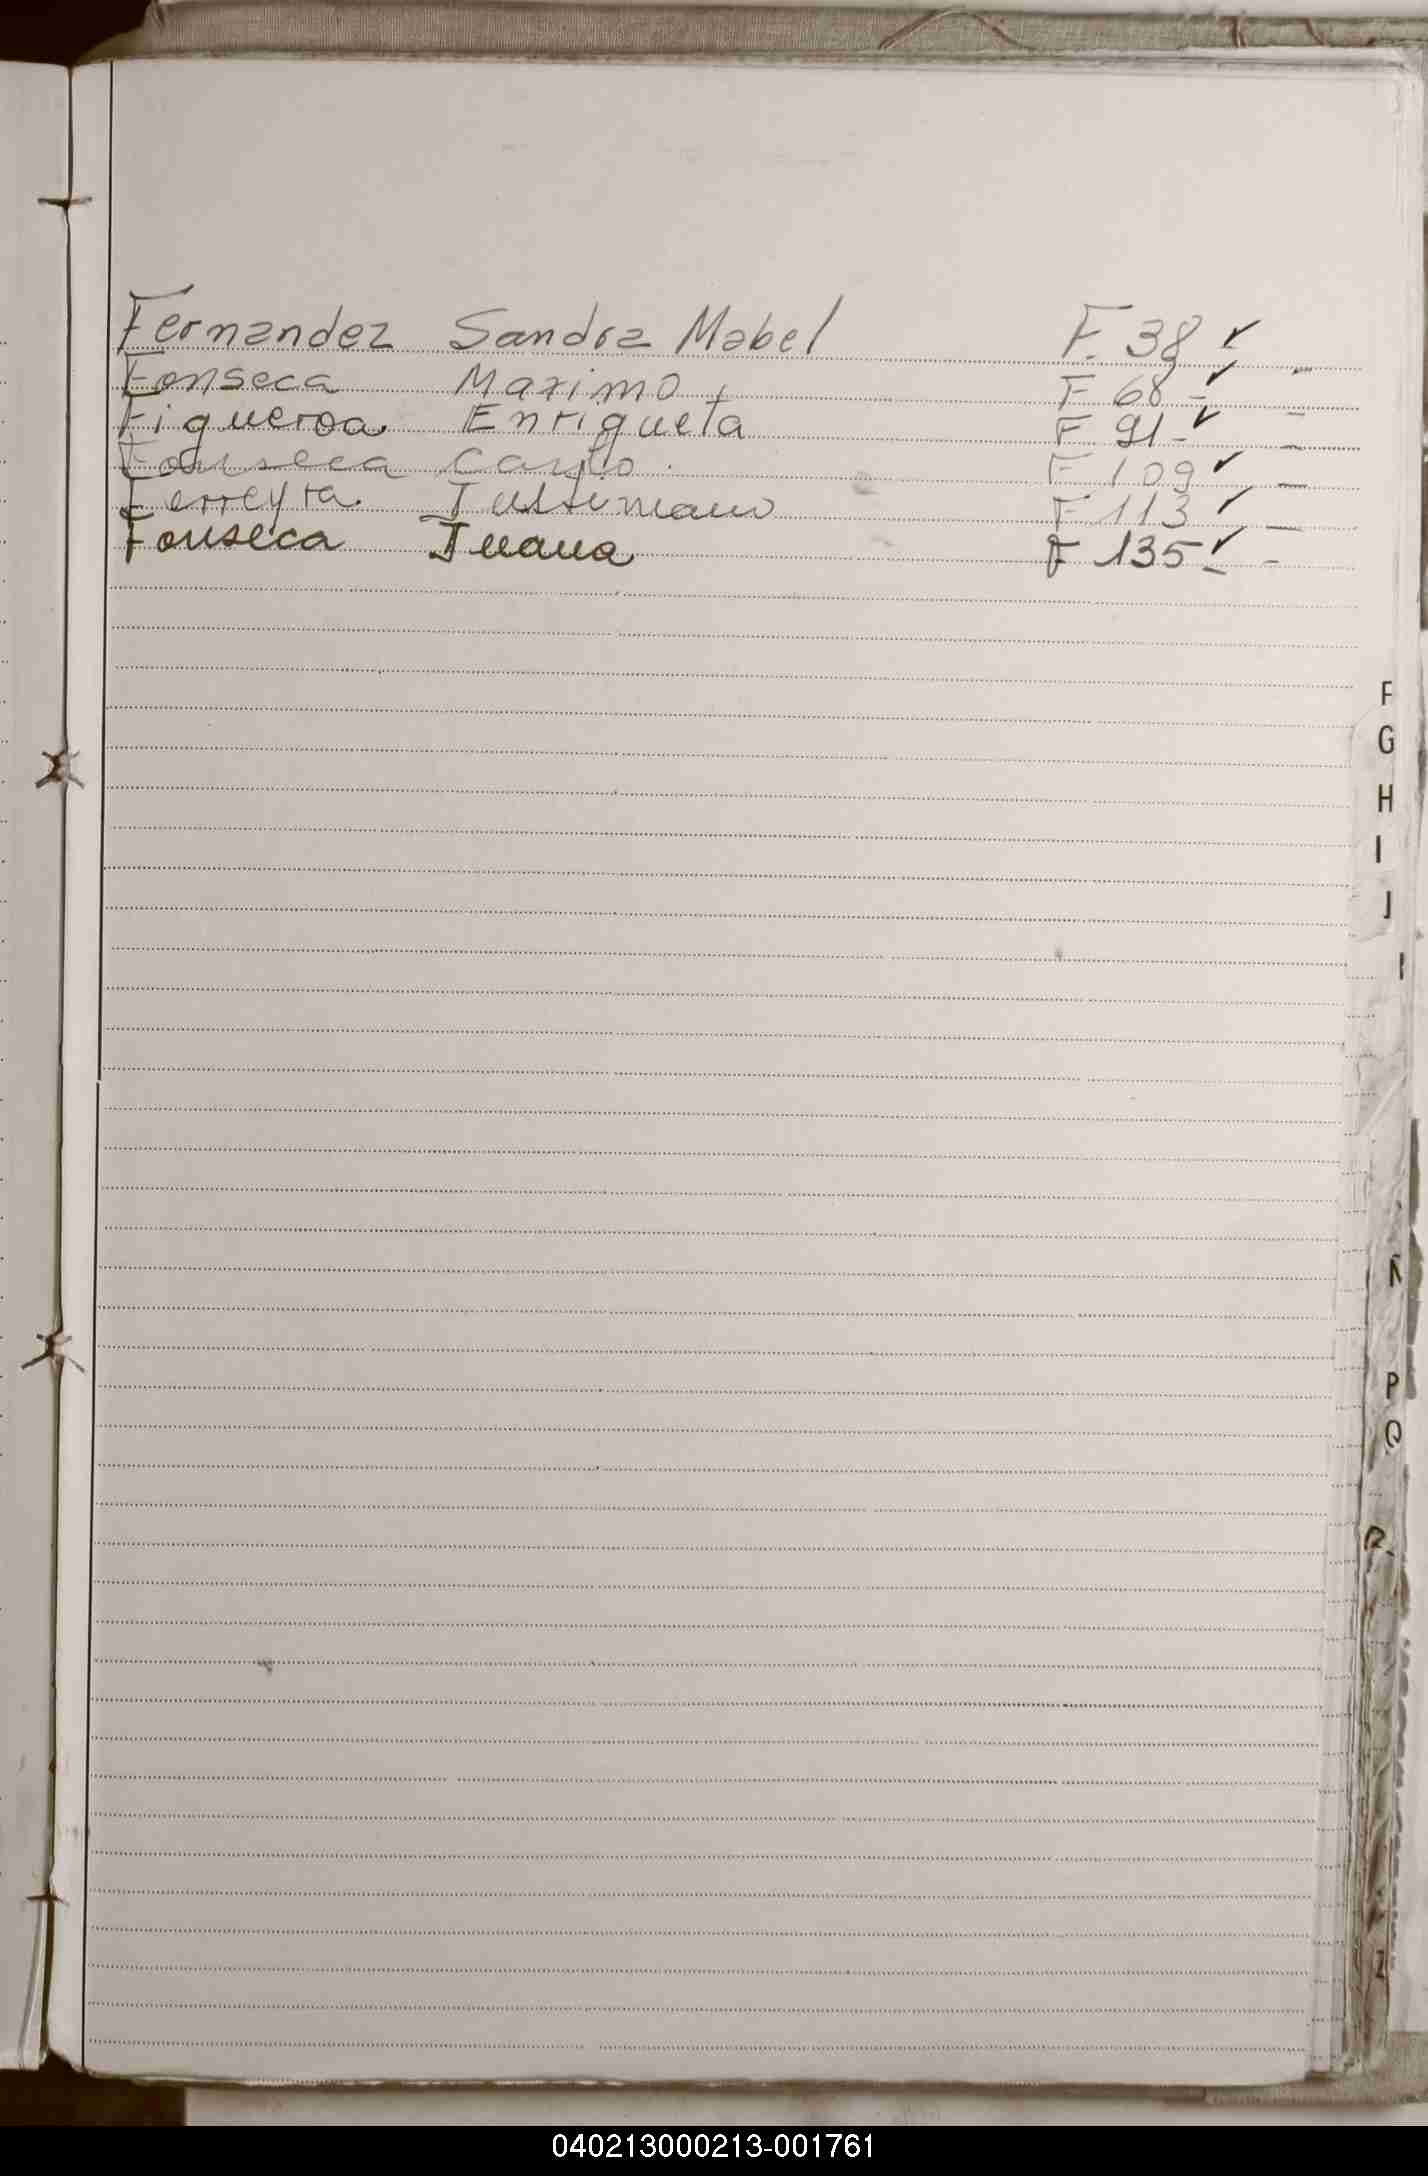 Fernandez Sandra Mabel F. 38 ✓ -
Fonseca Maximo F 68 - ✓ -
Figueroa Enriqueta F. 91 - ✓ -
Fonseca F 109 ✓ -
Ferreyra F 113 ✓ -
Fonseca Juana F 135 ✓ - -
F
G
H
I
J
Ñ
P
Q
R
Z
040213000213-001761